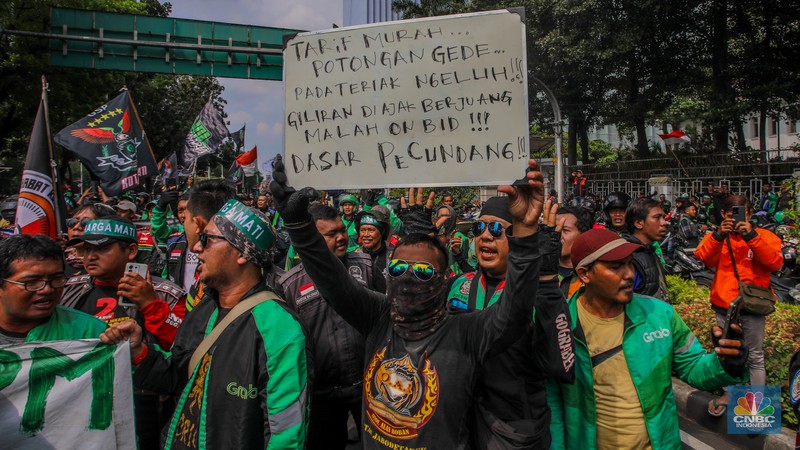 TARIF MURAH...
POTONGAN GEDE...
PADA TERIAK NGELUH!!!
GILIRAN DIAJAK BERJUANG
MALAH ON BID !!!
DASAR PECUNDANG!!
HARGA MATI
HARGA MATI
Grab
Grab
GARDA
PM
CNBC
INDONESIA